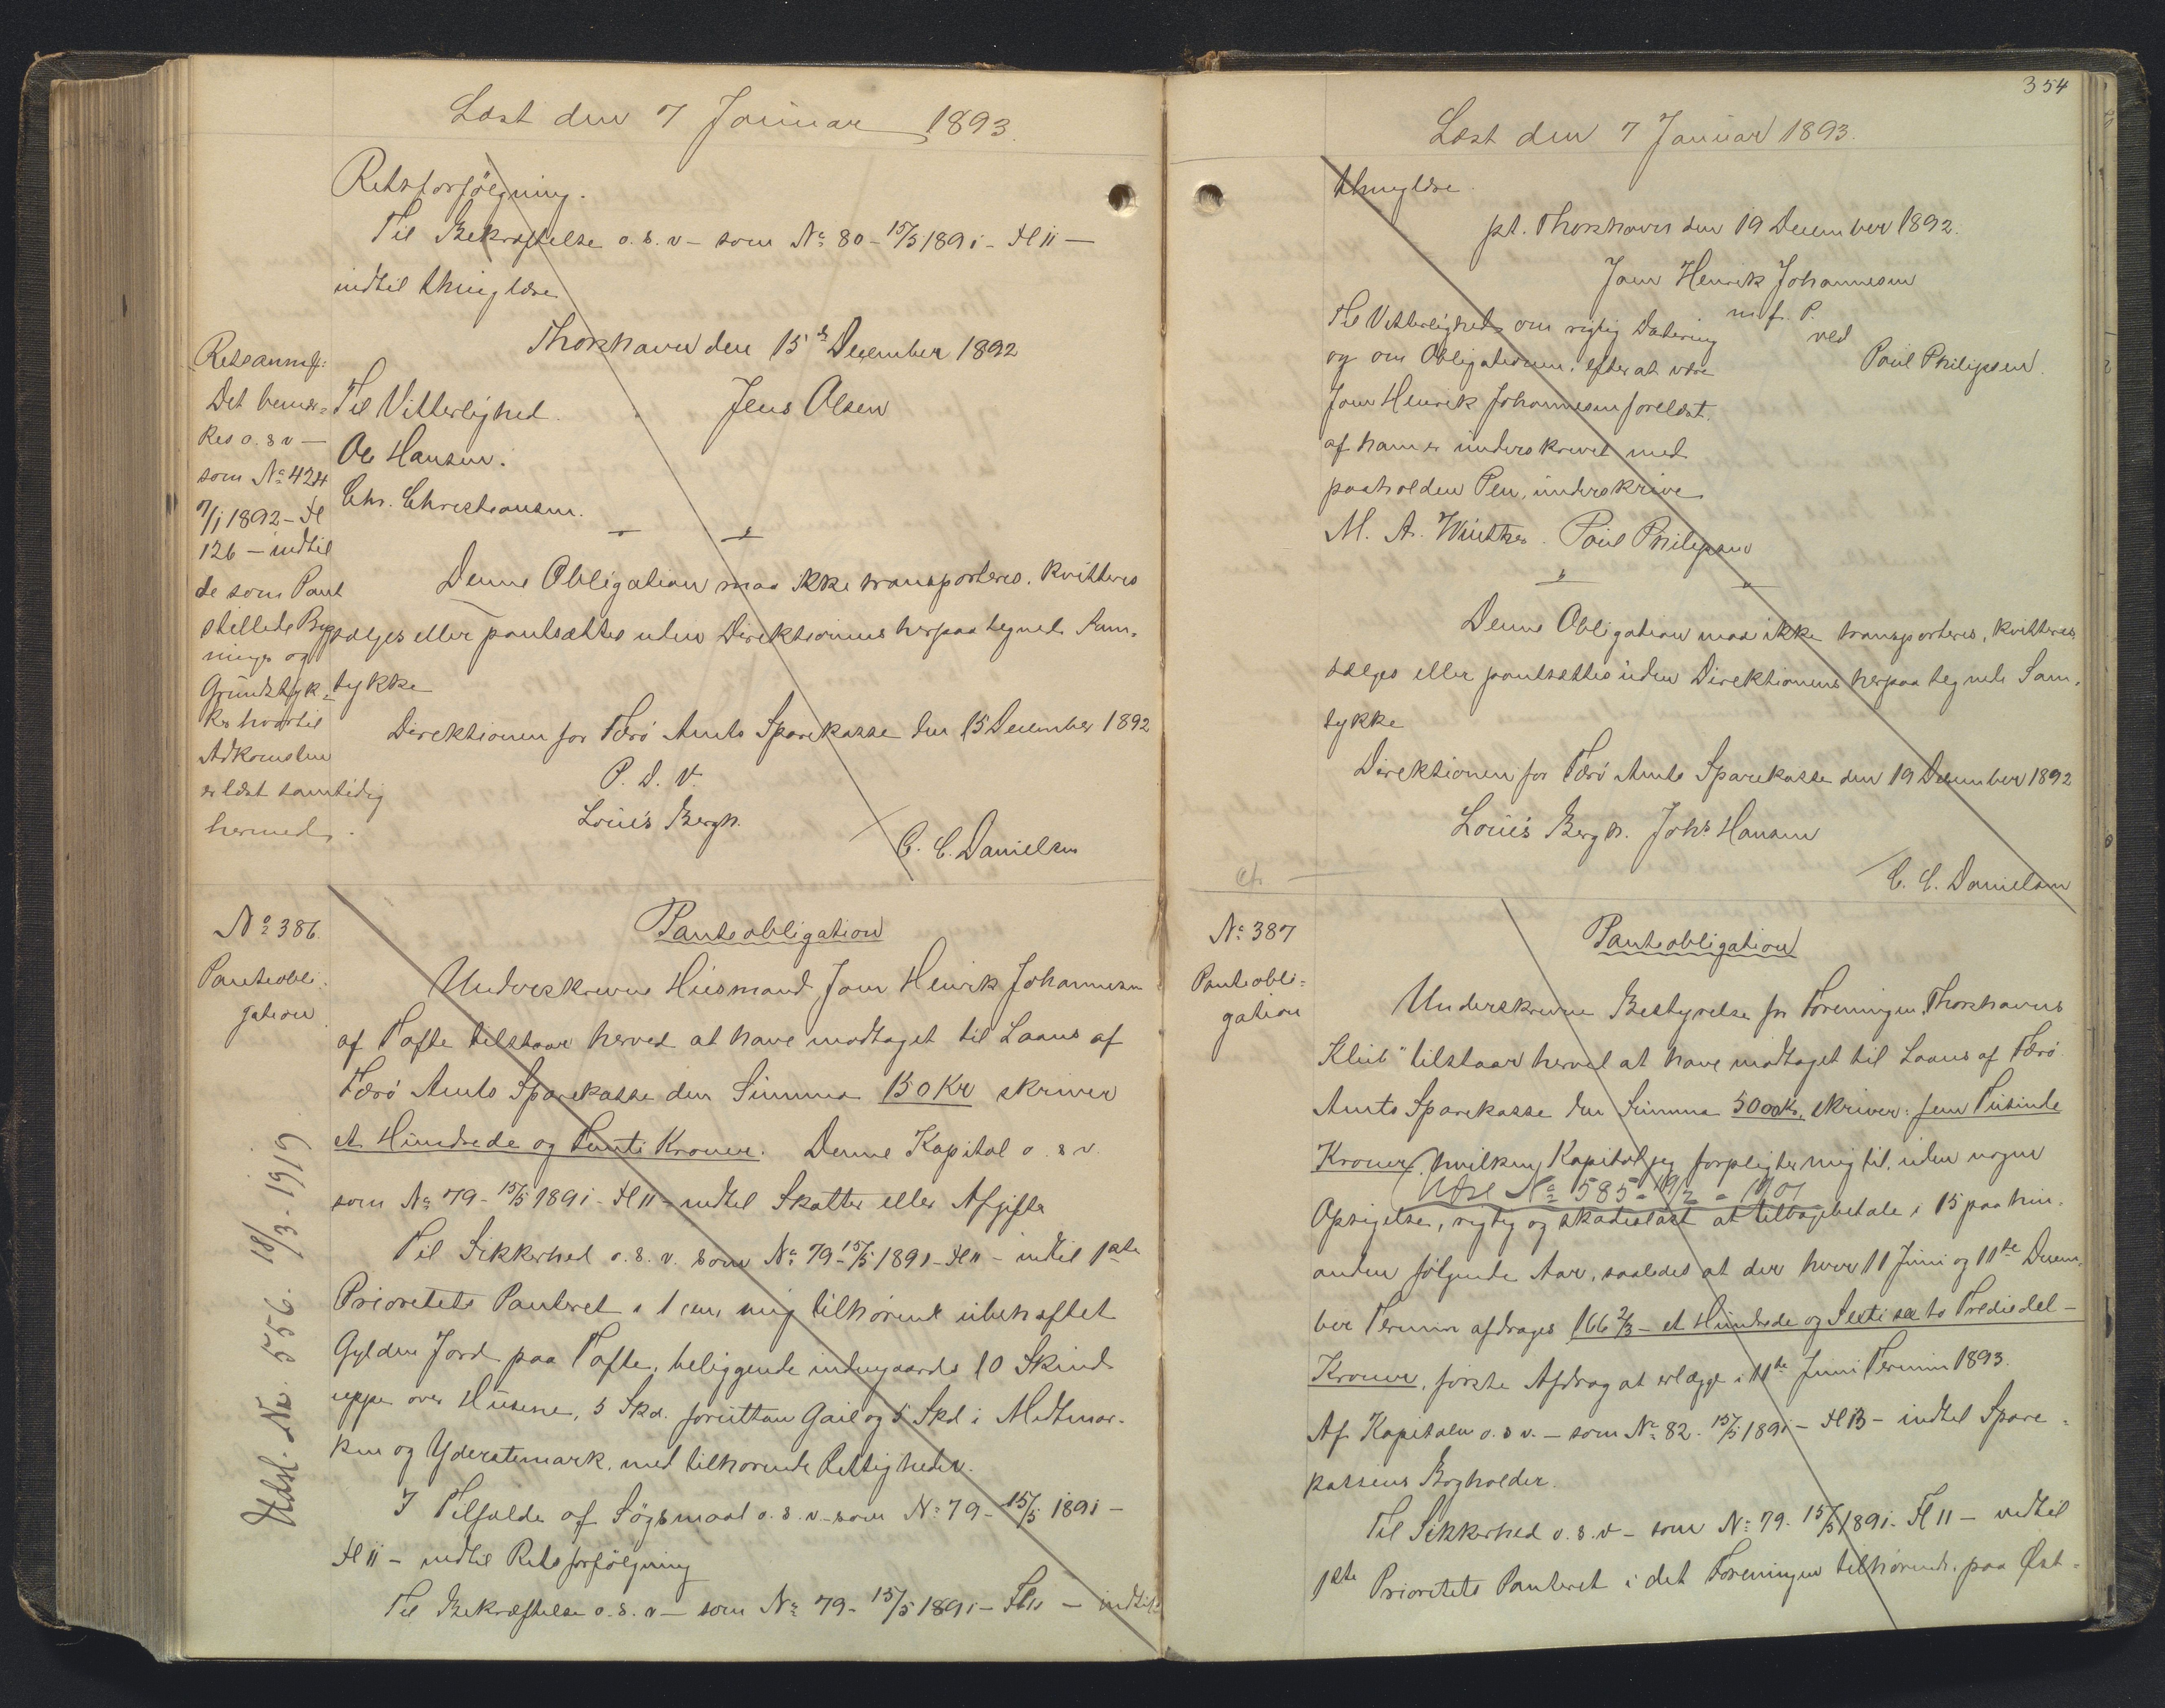 Læst den 7 Januar 1893.
Retsforfölgning.
Til Bekræftelse o. s. v – som No 80 – 15/5 1891 – Fl 11 –
indtil thinglæse
Thorshavn den 15de December 1892
Til Vitterlighed. Jens Olsen
Ole Hansen.
Chr. Christiansen.
Retsanmk:
Det bemær=
kes o. s v –
som No 424
7/1 1892 – Fl
126 – indtil
de som Pant
stillede Byg
ninger og
Grundstyk=
ker hvortil
Adkomsten
er læst samtidig
hermed.
Denne Obligation maa ikke transporteres, kvitteres
sælges eller pantsættes uden Direktionens herpaa tegnede Sam=
tykke
Direktionen for Færö Amts Sparekasse den 15 December 1892
P. D. V.
Louis Bergh.
C. C. Danielsen
No 386.
Panteobli=
gation
Udsl. No. 556. 18/3. 1919
Panteobligation
Underskrevne Huusmand Joen Henrik Johannesen
af Tofte tilstaar herved at have modtaget til Laans af
Færö Amts Sparekasse den Summa 150 Kr skriver
et Hundrede og Femti Kroner. Denne Kapital o. s v.
som No 79 – 15/5 1891 – Fl 11 – indtil Skatter eller Afgifter
Til Sikkerhed o. s. v. som No 79 – 15/5 1891 – Fl 11 – indtil 1ste
Prioritets Panteret i 1 en mig tilhörende ubehæftet
Gylden Jord paa Tofte, beliggende indengaards 10 Skind
uppe over Husene, 5 Skd. foruttan Gail og 5 Skd i Midtmar=
ken og Yderstemark, med tilhörende Rettigheder.
I Tilfælde af Sögsmaal o. s. v – som No 79 – 15/5 1891 –
Fl 11 – indtil Retsforfölgning
Til Bekræftelse o. s. v – som No 79 – 15/5 1891 – Fl 11 – indtil
354
Læst den 7 Januar 1893.
thinglæse.
pt. Thorshavn den 19 December 1892.
Joen Henrik Johannesen
m. f. P.
ved
Poul Philipsen.
Til Vitterlighed om rigtig Datering
og om Obligationen, efter at være
Joen Henrik Johannesen forelæst,
af ham er underskrevet med
paaholden Pen, underskrive
M. A. Winther. Poul Philipsen
Denne Obligation maa ikke transporteres, kvitteres
sælges eller pantsættes uden Direktionens herpaa tegnede Sam=
tykke
Direktionen for Færö Amts Sparekasse den 19 December 1892
Louis Bergh. Johs Hansen
C. C. Danielsen
No 387
Panteobli=
gation
Panteobligation
Underskrevne Bestyrelse for Foreningen „Thorshavns
Klub" tilstaar herved at have modtaget til Laans af Færö
Amts Sparekasse den Summa 5000 Kr. skriver: fem Tusinde
Kroner, hvilken Kapital jeg forpligter mig til, uden nogen
Udsl No 585 – 19/2 – 1901
Opsigelse, rigtig og skadeslöst at tilbagebetale i 15 paa hin=
anden fölgende Aar, saaledes at der hver 11 Juni og 11te Decem=
ber Termin afdrages 166 2/3 – et Hundrede og Sexti sex to Trediedel –
Kroner, förste Afdrag at erlægge i 11te Juni Termin 1893.
Af Kapitalen o. s v. – som No 82. 15/5 1891 – Fl 13 – indtil Spare=
kassens Bogholder.
Til Sikkerhed o. s. v – som No 79. 15/5 1891. Fl 11 – indtil
1ste Prioritets Panteret i det Foreningen tilhörende, paa Øst=